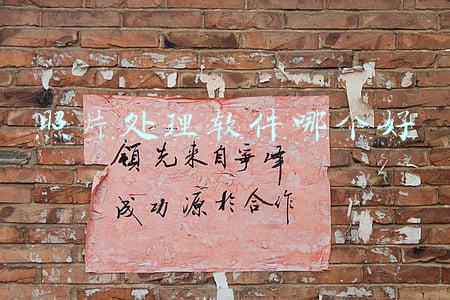 照片处理软件哪个好
领先来自争峰
成功源於合作